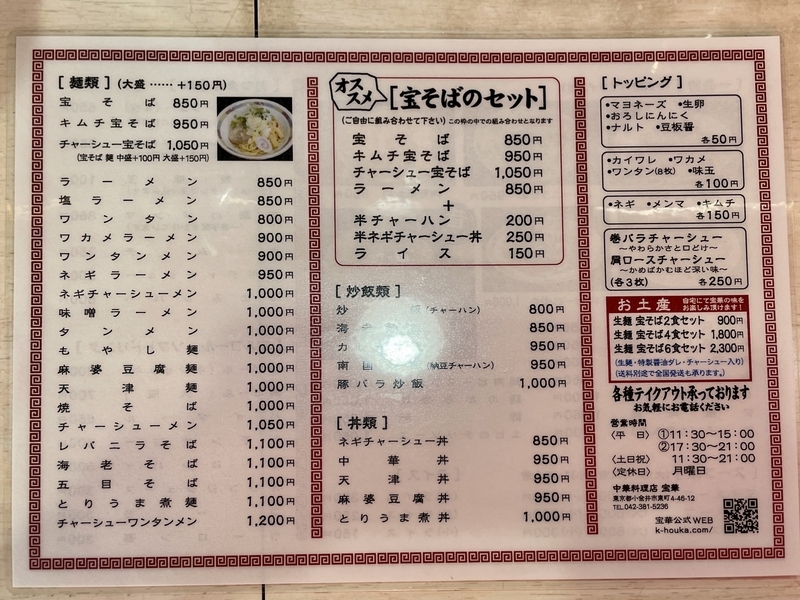 [ 麺類 ] (大盛 …… +150円)
宝そば 850円
キムチ宝そば 950円
チャーシュー宝そば 1,050円
(宝そば 麺 中盛+100円 大盛+150円)
ラーメン 850円
塩ラーメン 850円
ワンタン 800円
ワカメラーメン 900円
ワンタンメン 900円
ネギラーメン 950円
ネギチャーシューメン 1,000円
味噌ラーメン 1,000円
タンメン 1,000円
もやし麺 1,000円
麻婆豆腐麺 1,000円
天津麺 1,000円
焼そば 1,000円
チャーシューメン 1,050円
レバニラそば 1,100円
海老そば 1,100円
五目そば 1,100円
とりうま煮麺 1,100円
チャーシューワンタンメン 1,200円
オススメ
[宝そばのセット]
(ご自由に組み合わせて下さい) この枠の中での組み合わせとなります
宝そば 850円
キムチ宝そば 950円
チャーシュー宝そば 1,050円
ラーメン 850円
+
半チャーハン 200円
半ネギチャーシュー丼 250円
ライス 150円
[ 炒飯類 ]
炒 (チャーハン) 800円
海 850円
カ 950円
南国 (納豆チャーハン) 950円
豚バラ炒飯 1,000円
[ 丼類 ]
ネギチャーシュー丼 850円
中華丼 950円
天津丼 950円
麻婆豆腐丼 950円
とりうま煮丼 1,000円
[ トッピング ]
•マヨネーズ •生卵
•おろしにんにく
•ナルト •豆板醤
各50円
•カイワレ •ワカメ
•ワンタン(8枚) •味玉
各100円
•ネギ •メンマ •キムチ
各150円
巻バラチャーシュー
～やわらかさと口どけ～
肩ロースチャーシュー
～かめばかむほど深い味～
(各3枚) 各250円
お土産 自宅にて宝華の味をお楽しみ頂けます!
生麺 宝そば2食セット 900円
生麺 宝そば4食セット 1,800円
生麺 宝そば6食セット 2,300円
(生麺・特製醤油ダレ・チャーシュー入り)
(送料別途で全国発送も承ります。)
各種テイクアウト承っております
お気軽にお電話ください
営業時間
〈平 日〉 ①11:30～15:00
②17:30～21:00
〈土日祝〉 11:30～21:00
〈定休日〉 月曜日
中華料理店 宝華
東京都小金井市東町4-46-12
TEL.042-381-5236
宝華公式WEB
k-houka.com/